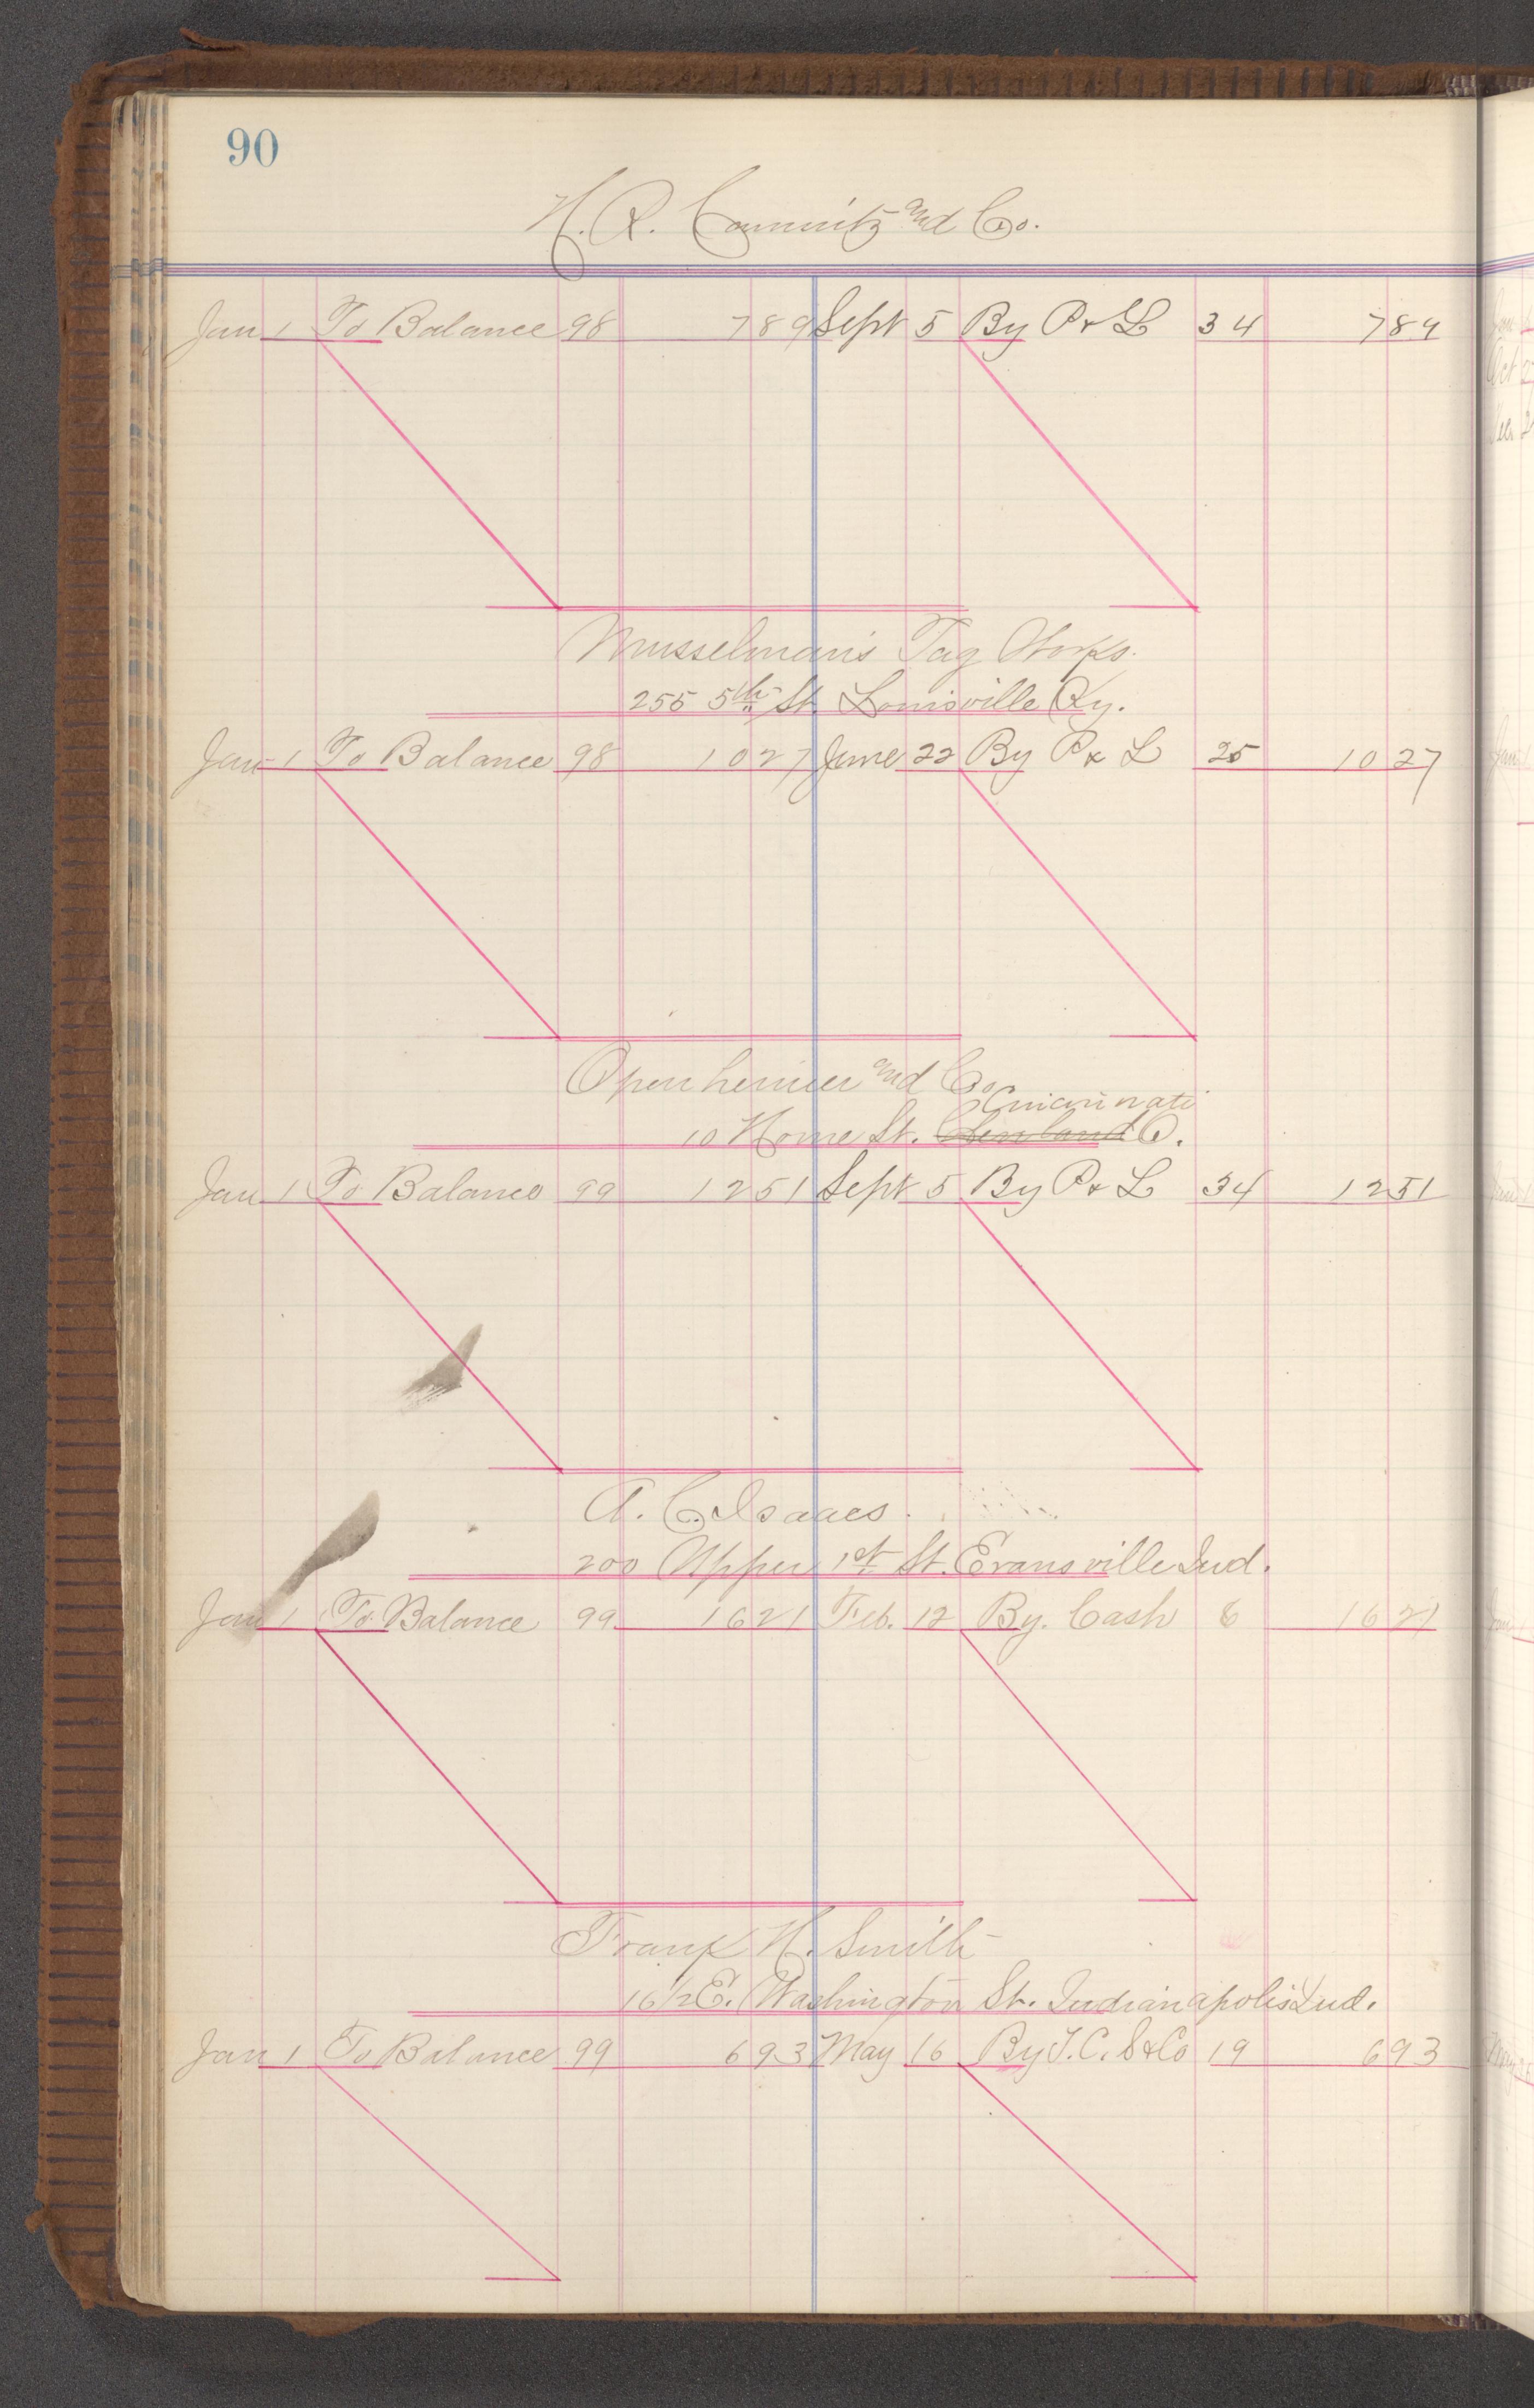 90
H. R. and Co.
Jan 1 To Balance 98 789 Sept 5 By P & L 34 789
Musselman's Tag Works.
255 5th St. Louisville Ky.
Jan 1 To Balance 98 1027 June 22 By P & L 25 1027
Openheimer and Co
Cincinnati
10 Home St. O.
Jan 1 To Balance 99 1251 Sept 5 By P & L 34 1251
A. C. Isaacs.
200 Upper 1st St. Evansville Ind.
Jan 1 To Balance 99 1621 Feb. 12 By Cash 6 1621
Frank H. Smith
16 1/2 E. Washington St. Indianapolis Ind.
Jan 1 To Balance 99 693 May 16 By T. C. S & Co 19 693